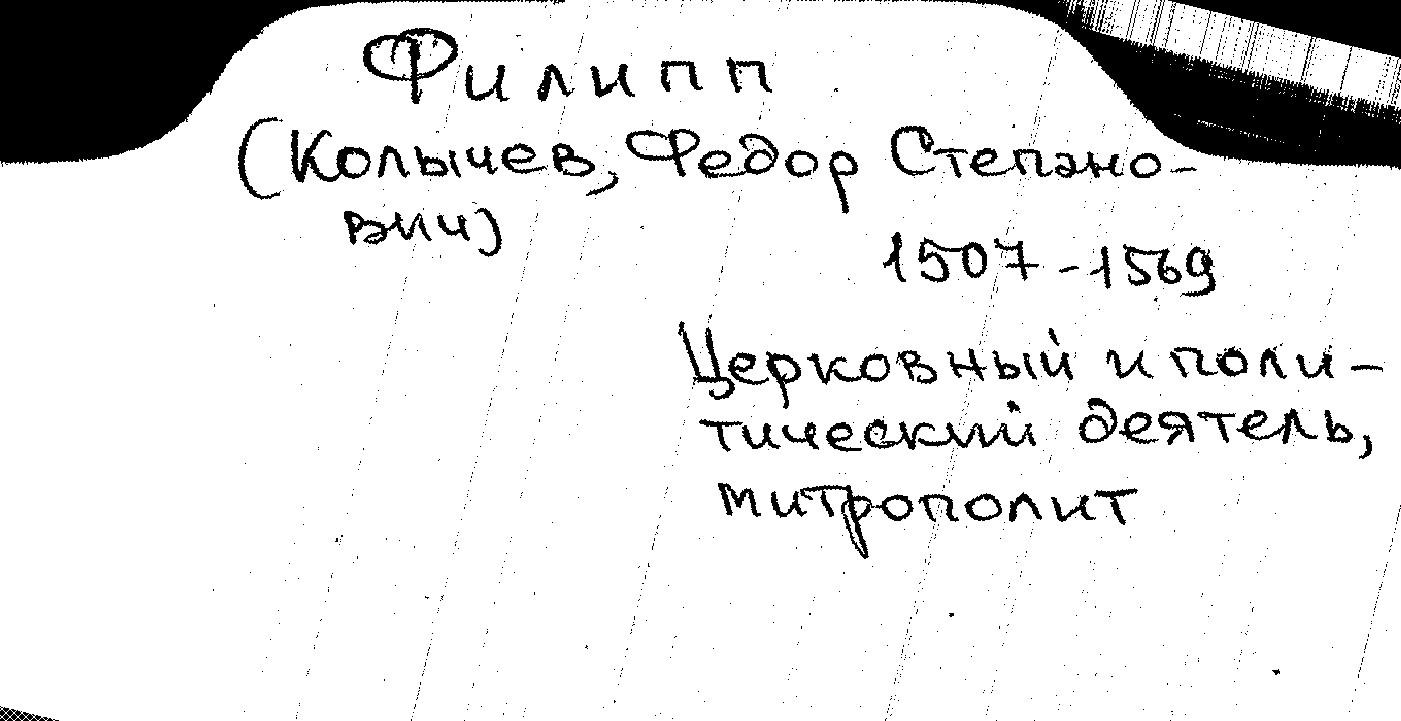 Филипп
(Колычев, Федор Степано-
вич)
1507-1569
Церковный и поли-
тический деятель,
митрополит